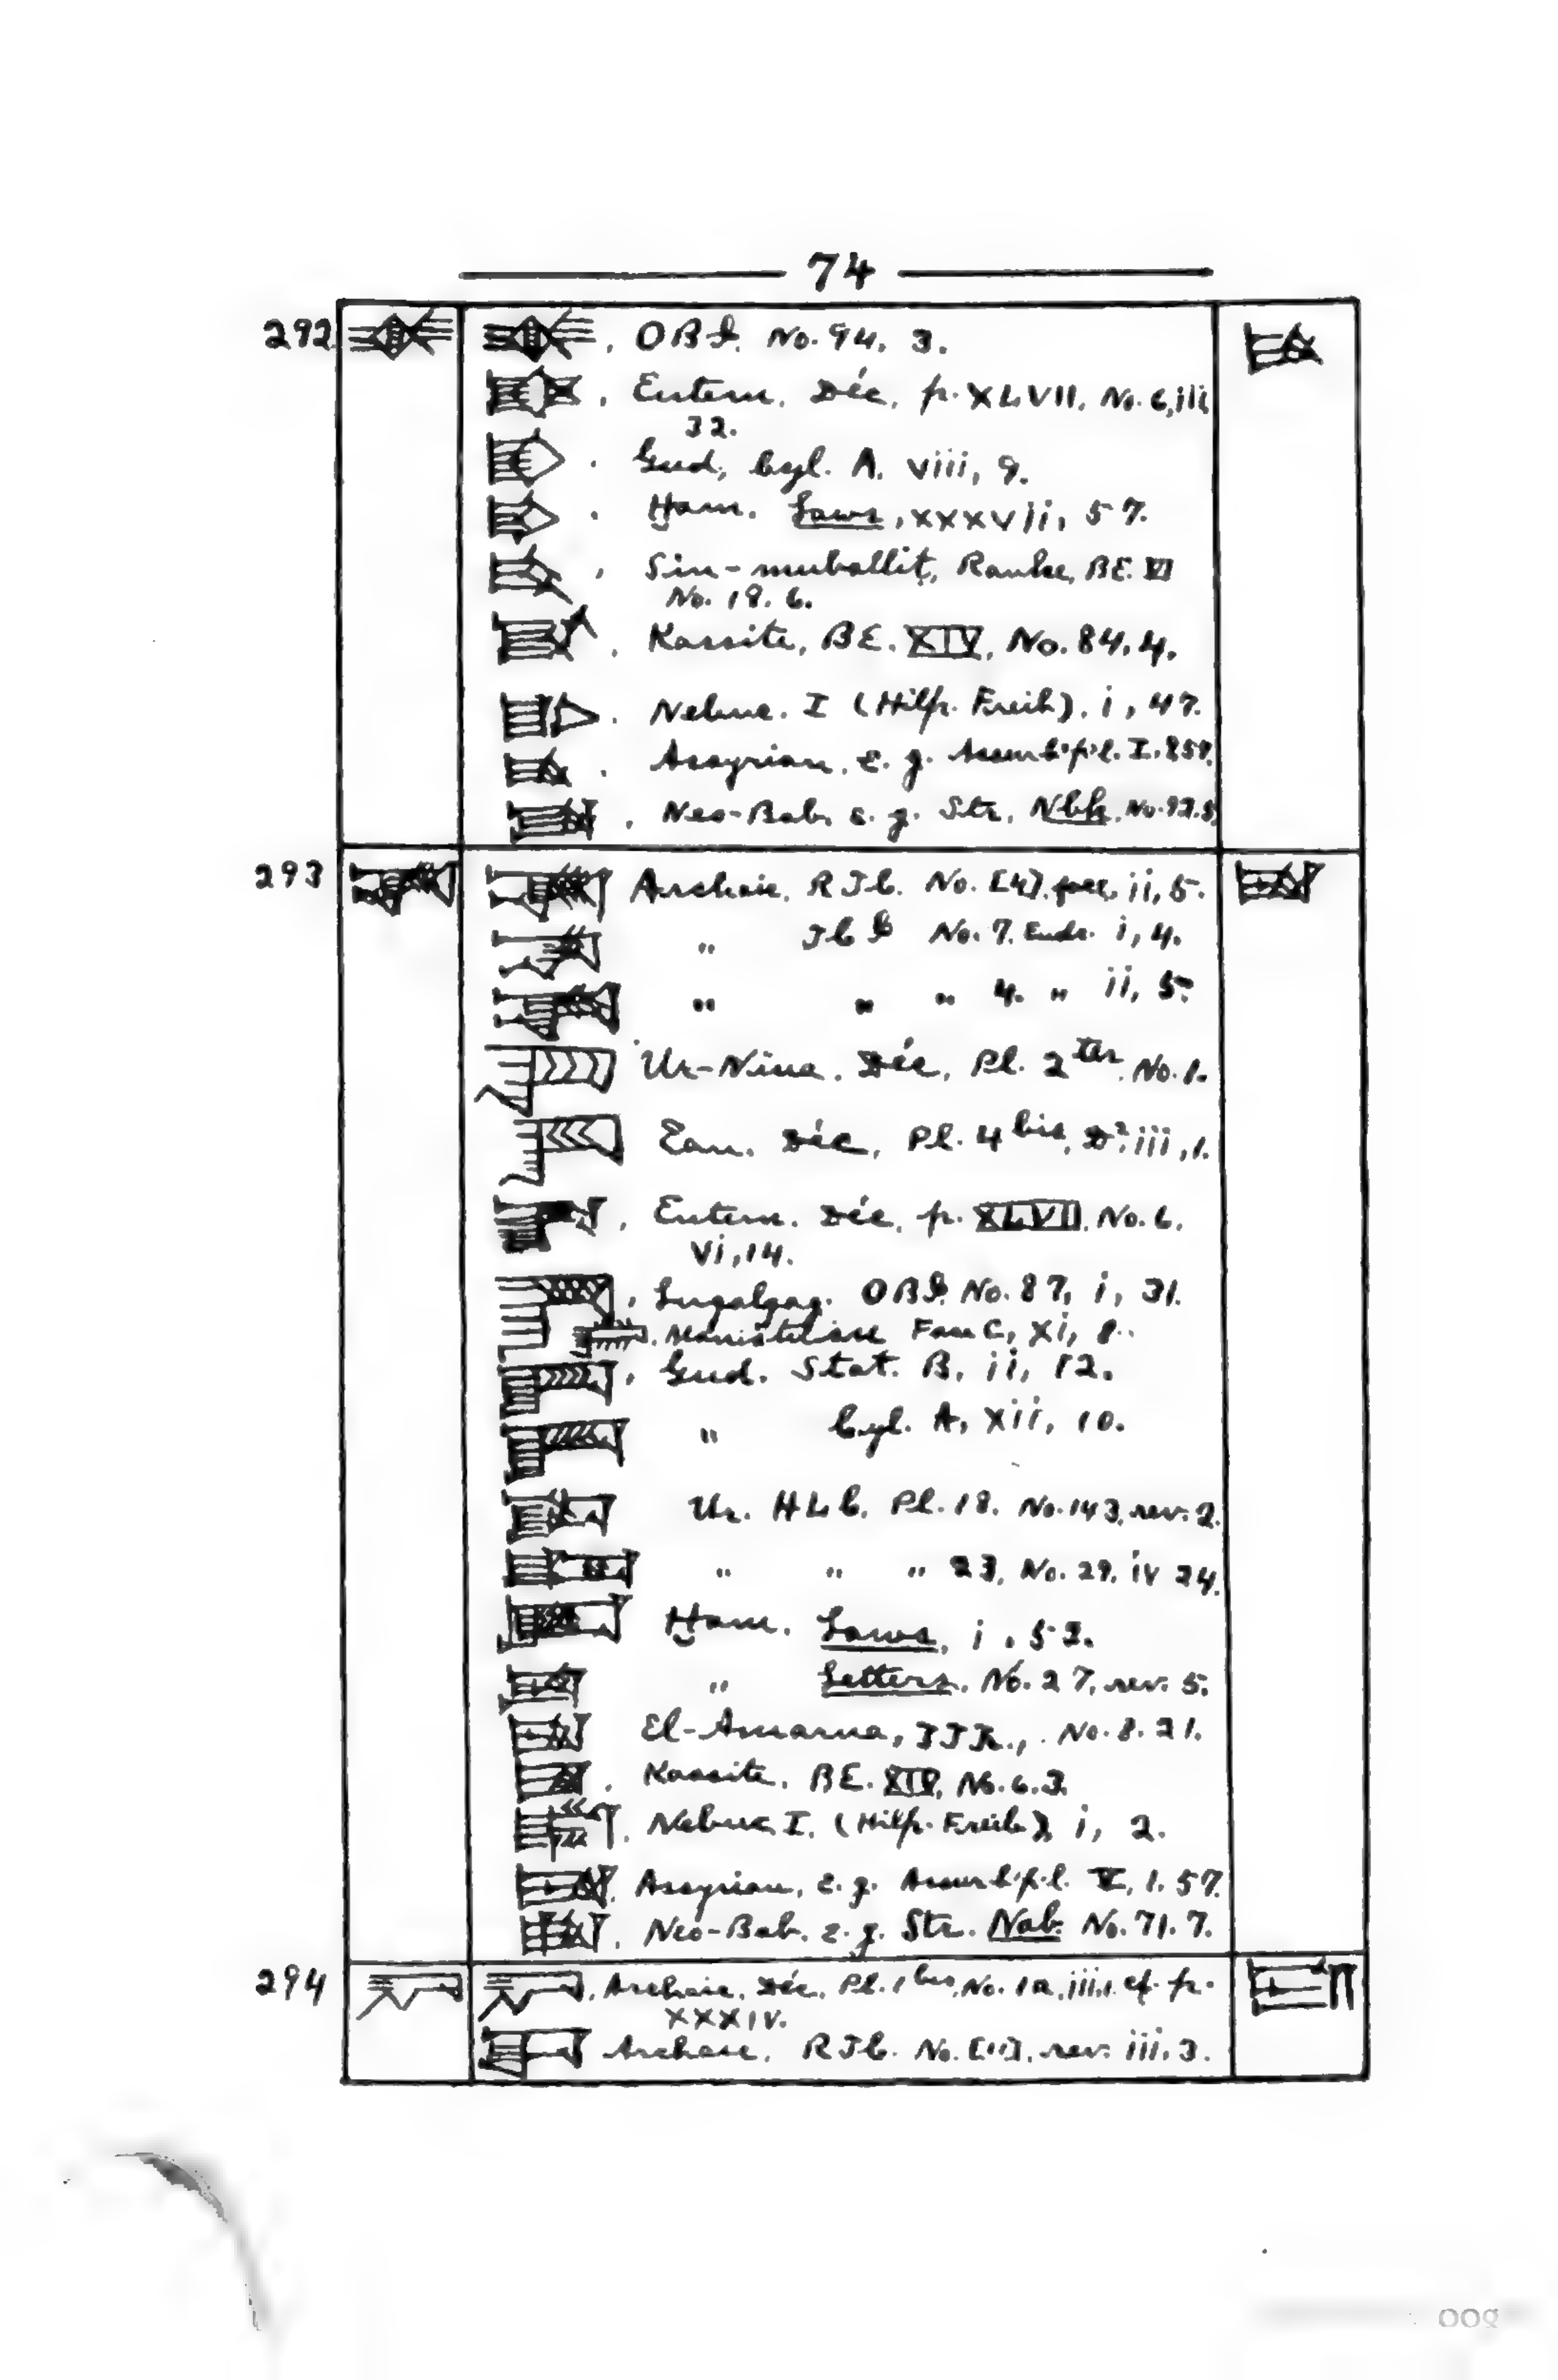 74
292 OBI. No. 94, 3.
Entem. Déc, p. XLVII, No. 6, iii,
32.
Gud, Cyl. A. viii, 9.
Ḫam. Laws, xxxvii, 57.
Sin-muballiṭ, Ranke, BE. VI
No. 18. 6.
Kassite, BE. XIV, No. 84, 4.
Nebuc. I (Hilp. Freib), i, 47.
Assyrian, e. g. I.
Neo-Bab, e. g. Str, Nbk, No.
293 Archaic, RTC. No. [4], ii, 5.
" No. 7. i, 4.
" " " 4. " ii, 5.
Ur-Nina. Déc, Pl. 2 ter, No. 1.
Ean. Déc, Pl. 4 bis, D², iii, 1.
Entem. Déc, p. XLVII, No. 6.
vi, 14.
Lugalzag. OBI. No. 87, i, 31.
Maništušu Face C, xi, 8.
Gud. Stat. B, ii, 12.
" Cyl. A, xii, 10.
Ur. HLC, Pl. 18. No. 143, rev. 2.
" " " 23, No. 29, iv 24.
Ḫam. Laws, i, 52.
" Letters, No. 27, rev. 5.
El-Amarna, No. 8. 21.
Kassite, BE. XIV, No. 6. 3.
Nebuc. I. (Hilp. Freib), i, 2.
Assyrian, e. g. V, 1. 57.
Neo-Bab. e. g. Str. Nab. No. 71. 7.
294 Archaic, Déc, Pl. 1 bis, No. 1a, iii, 1. cf. p.
XXXIV.
Archaic, RTC. No. [11], rev. iii. 3.